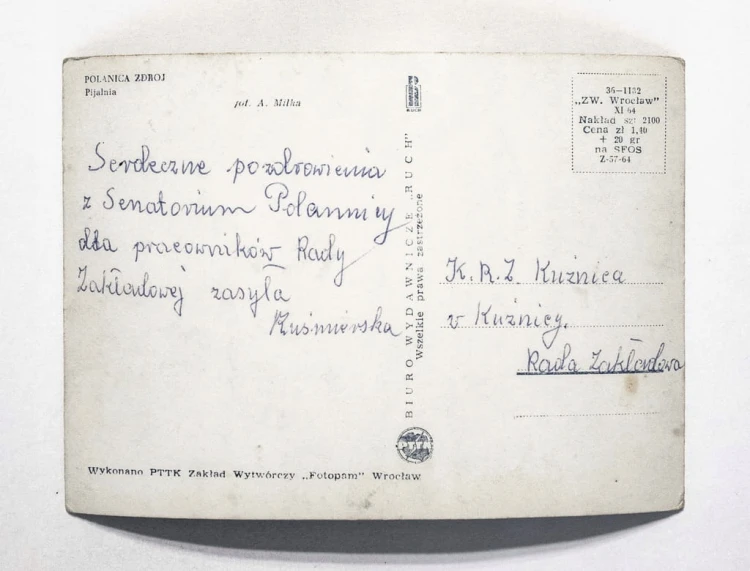 POLANICA ZDRÓJ
Pijalnia
fot. A. Milka
Serdeczne pozdrowienia
z Senatorium Polannicy
dla pracowników Rady
Zakładowej zasyła
Kuśmierska
BIURO WYDAWNICZE „RUCH"
Wszelkie prawa zastrzeżone
36—1132
„ZW. Wrocław"
XI 64
Nakład szt 2100
Cena zł 1,40
+ 20 gr
na SFOS
Z-57-64
K.R.Z. Kuźnica
v Kuźnicy.
Rada Zakładowa
Wykonano PTTK Zakład Wytwórczy „Fotopam" Wrocław